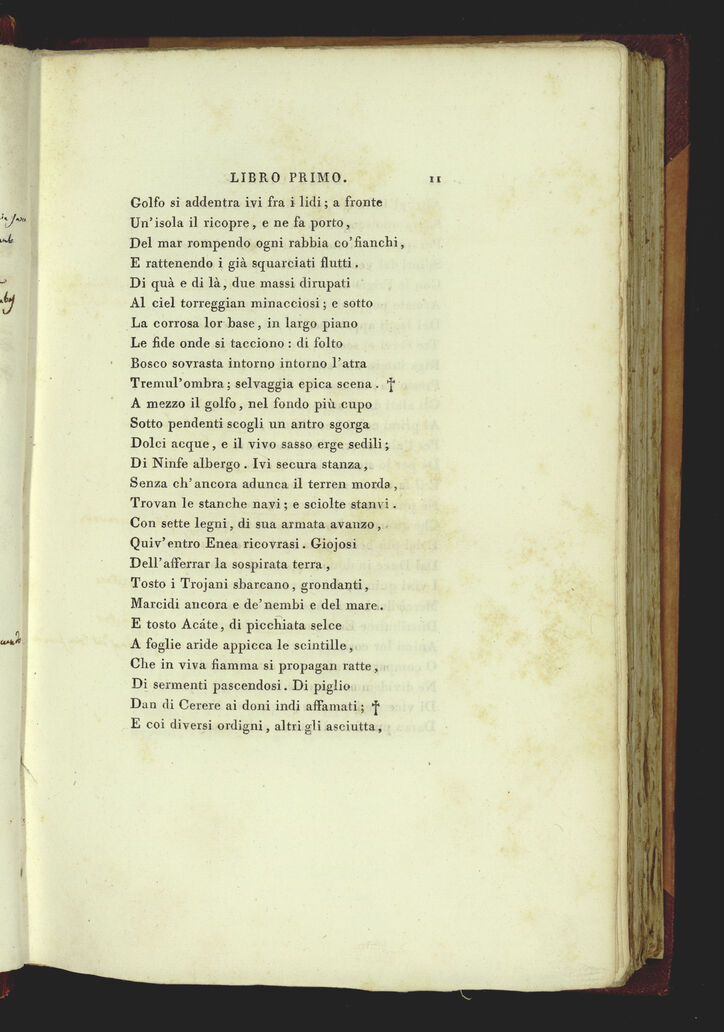 LIBRO PRIMO. 11
Golfo si addentra ivi fra i lidi; a fronte
Un'isola il ricopre, e ne fa porto,
Del mar rompendo ogni rabbia co'fianchi,
E rattenendo i già squarciati flutti.
Di quà e di là, due massi dirupati
Al ciel torreggian minacciosi; e sotto
La corrosa lor base, in largo piano
Le fide onde si tacciono: di folto
Bosco sovrasta intorno intorno l'atra
Tremul'ombra; selvaggia epica scena. †
A mezzo il golfo, nel fondo più cupo
Sotto pendenti scogli un antro sgorga
Dolci acque, e il vivo sasso erge sedili;
Di Ninfe albergo. Ivi secura stanza,
Senza ch'ancora adunca il terren morda,
Trovan le stanche navi; e sciolte stanvi.
Con sette legni, di sua armata avanzo,
Quiv'entro Enea ricovrasi. Giojosi
Dell'afferrar la sospirata terra,
Tosto i Trojani sbarcano, grondanti,
Marcidi ancora e de'nembi e del mare.
E tosto Acáte, di picchiata selce
A foglie aride appicca le scintille,
Che in viva fiamma si propagan ratte,
Di sermenti pascendosi. Di piglio
Dan di Cerere ai doni indi affamati; †
E coi diversi ordigni, altri gli asciutta,